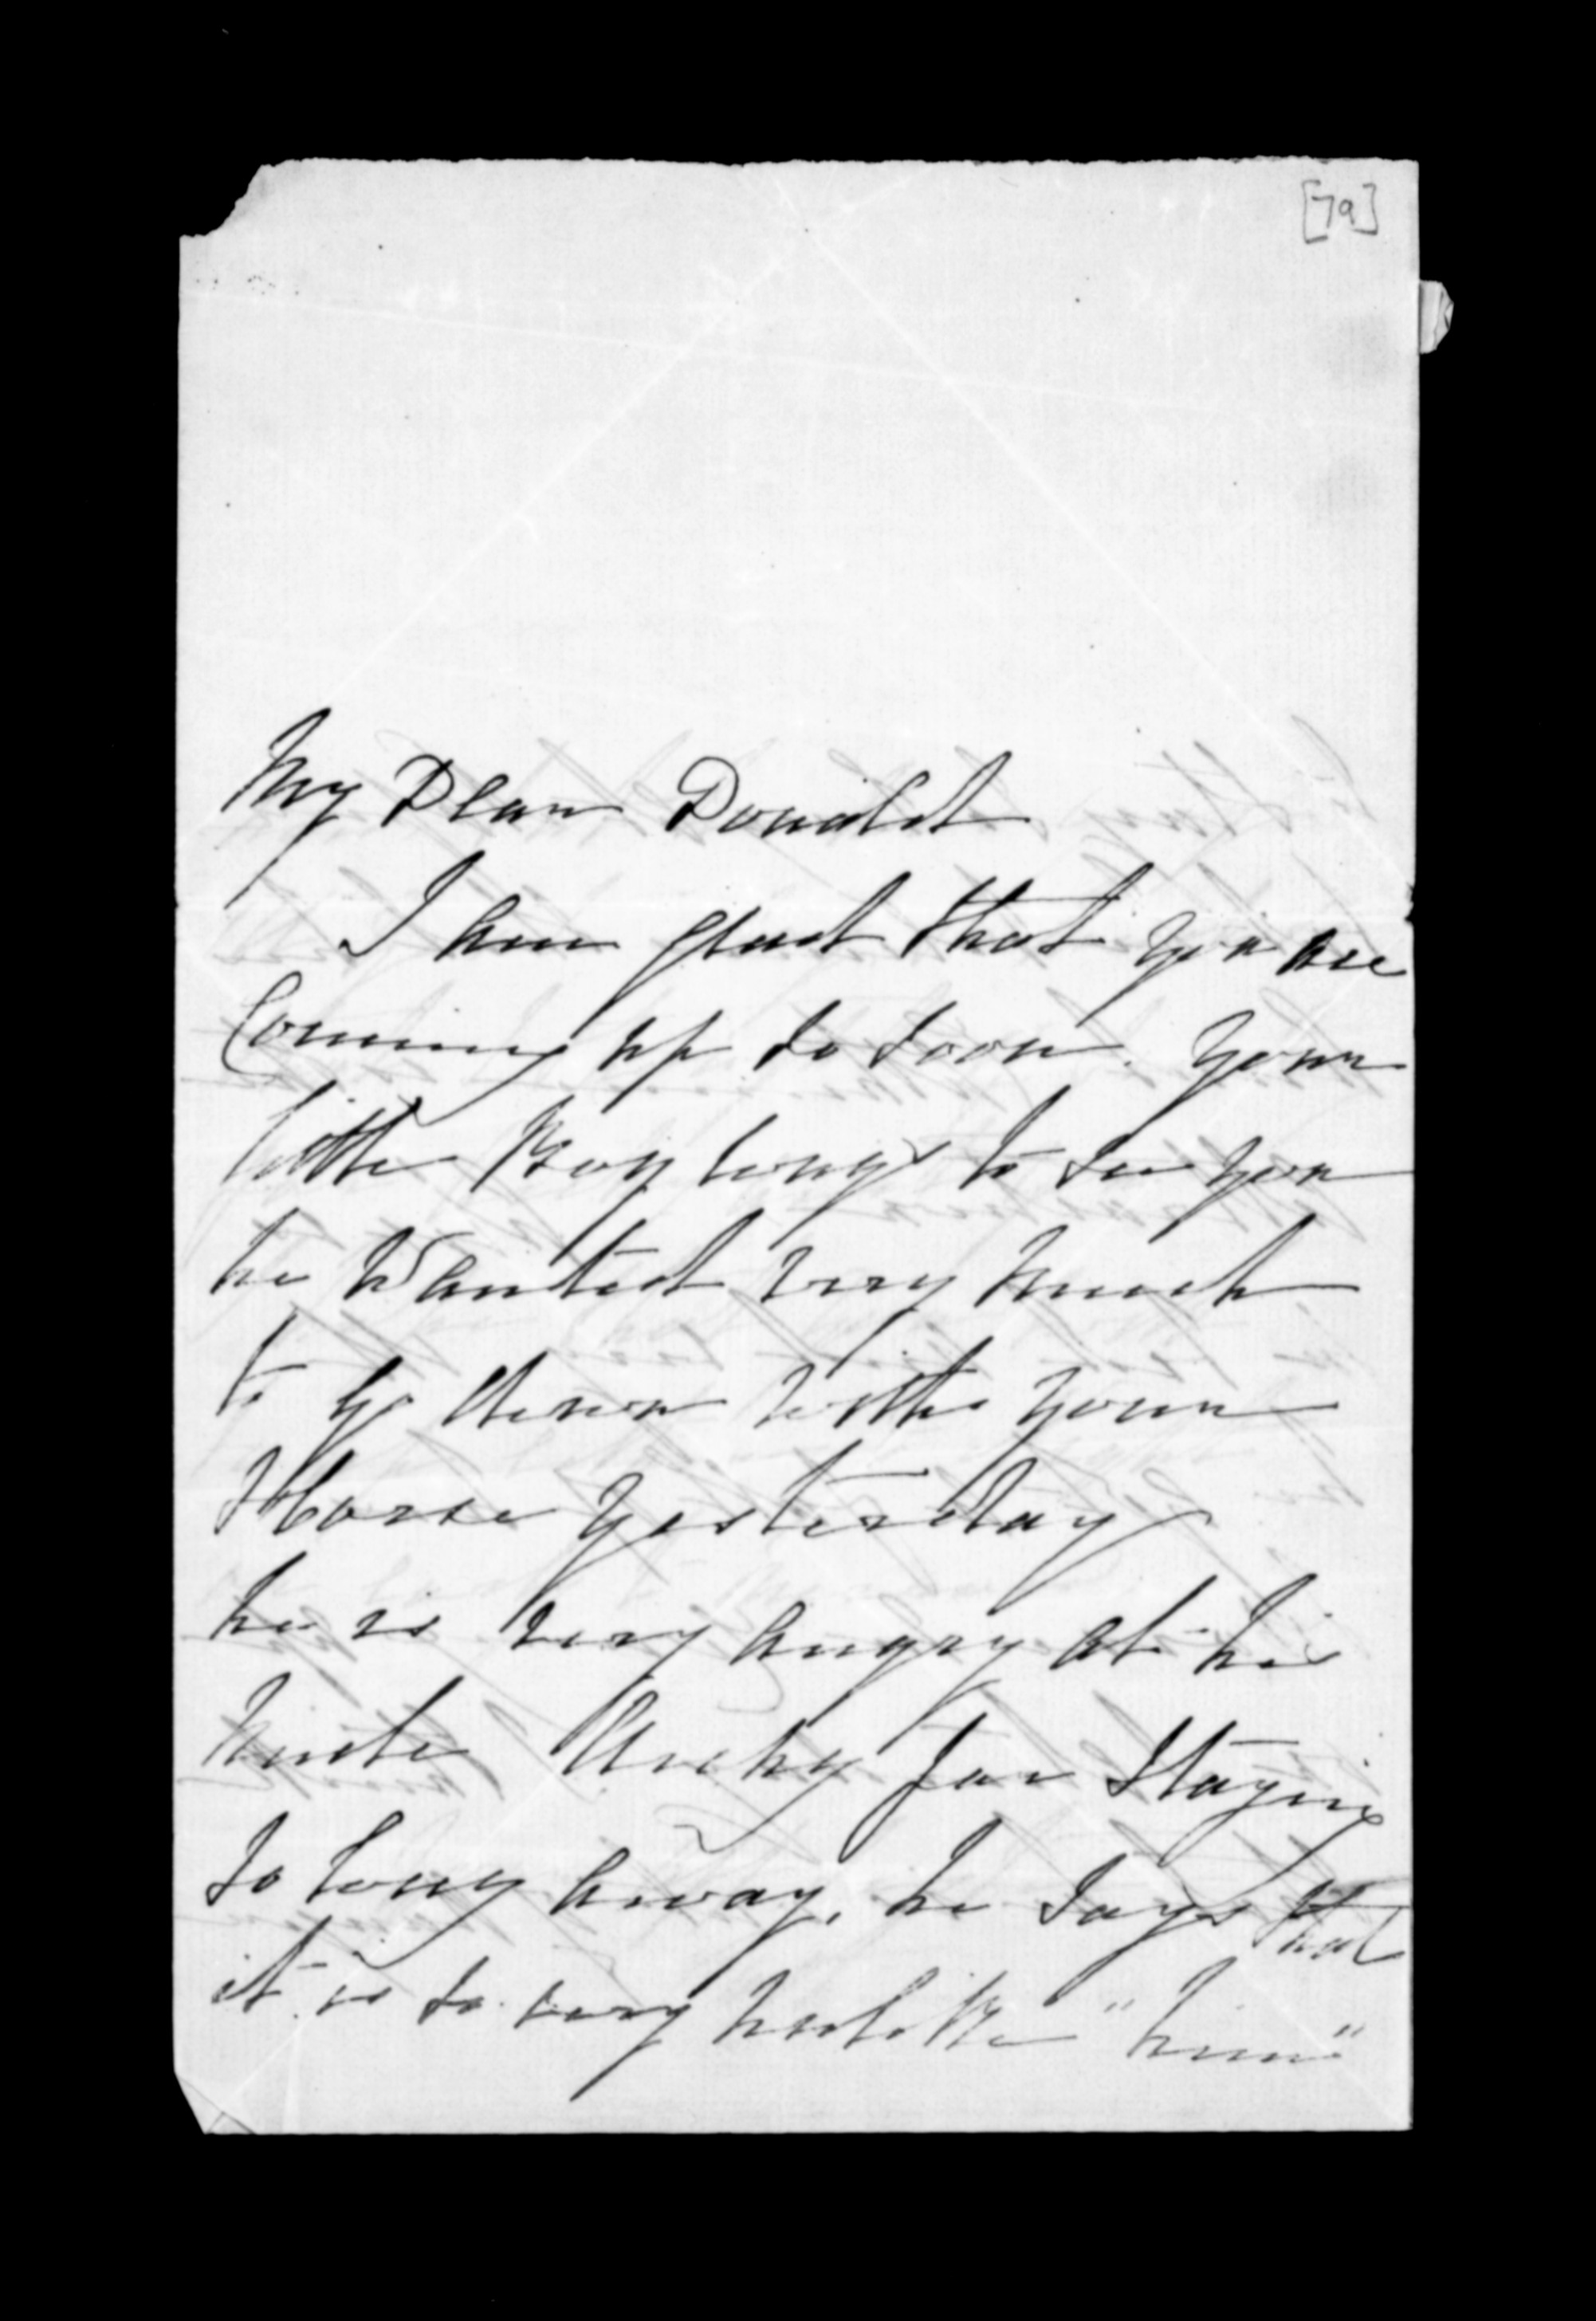 [79]
My Dear Donald
I am glad that you are
Coming up so soon. Your
little Boy longs to see you
he wanted very much
to go down with your
Horse yesterday
he is very angry at his
Uncle Archy for Staying
So long away, he says that
it is so very unlike "him"